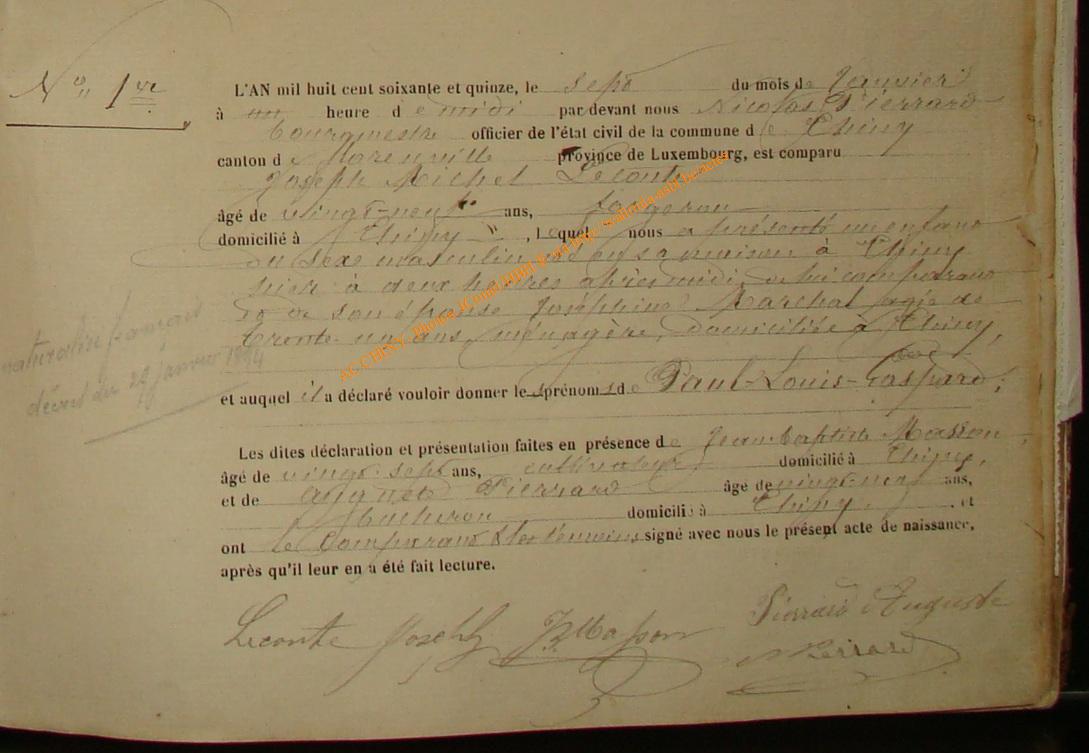 N° 1er
L'AN mil huit cent soixante et quinze, le sept du mois de Janvier
à un heure de midi par devant nous Nicolas Pierrard
bourgmestre officier de l'état civil de la commune de Chiny
canton de Florenville province de Luxembourg, est comparu
Joseph Michel Leconte
âgé de vingt-neuf ans, forgeron
domicilié à Chiny, lequel nous a présenté un enfant
du sexe masculin, né en sa maison à Chiny
hier à deux heures après midi, de lui comparant
et de son épouse Joséphine Marchal agée de
trente-un ans, ménagère, domiciliée à Chiny,
et auquel il a déclaré vouloir donner les prénoms de Paul-Louis-Gaspard;
Les dites déclaration et présentation faites en présence de Jean-baptiste Masson
âgé de vingt-sept ans, cultivateur domicilié à Chiny,
et de August Pierrard âgé de vingt-neuf ans,
bucheron domicilié à Chiny, et
ont le Comparant & les témoins, signé avec nous le présent acte de naissance,
après qu'il leur en a été fait lecture.
Leconte Joseph JB Masson Pierrard Auguste
N Pierrard
naturalisé français
décret du 29 janvier 1894